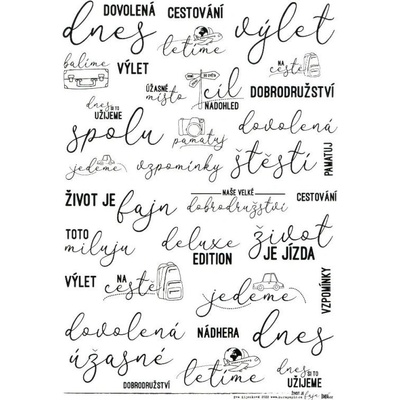 DOVOLENÁ
CESTOVÁNÍ
dnes
letíme
výlet
balíme
VÝLET
na
cestě
ÚŽASNÉ
místo
cíl
NADOHLED
DOBRODRUŽSTVÍ
dnes
SI TO
UŽIJEME
spolu
pamatuj
dovolená
jedeme
vzpomínky
štěstí
PAMATUJ
ŽIVOT JE
fajn
NAŠE VELKÉ
dobrodružství
CESTOVÁNÍ
TOTO
miluju
deluxe
EDITION
život
JE JÍZDA
VÝLET
NA
cestě
jedeme
VZPOMÍNKY
dovolená
NÁDHERA
dnes
úžasné
DOBRODRUŽSTVÍ
letíme
dnes
SI TO
UŽIJEME